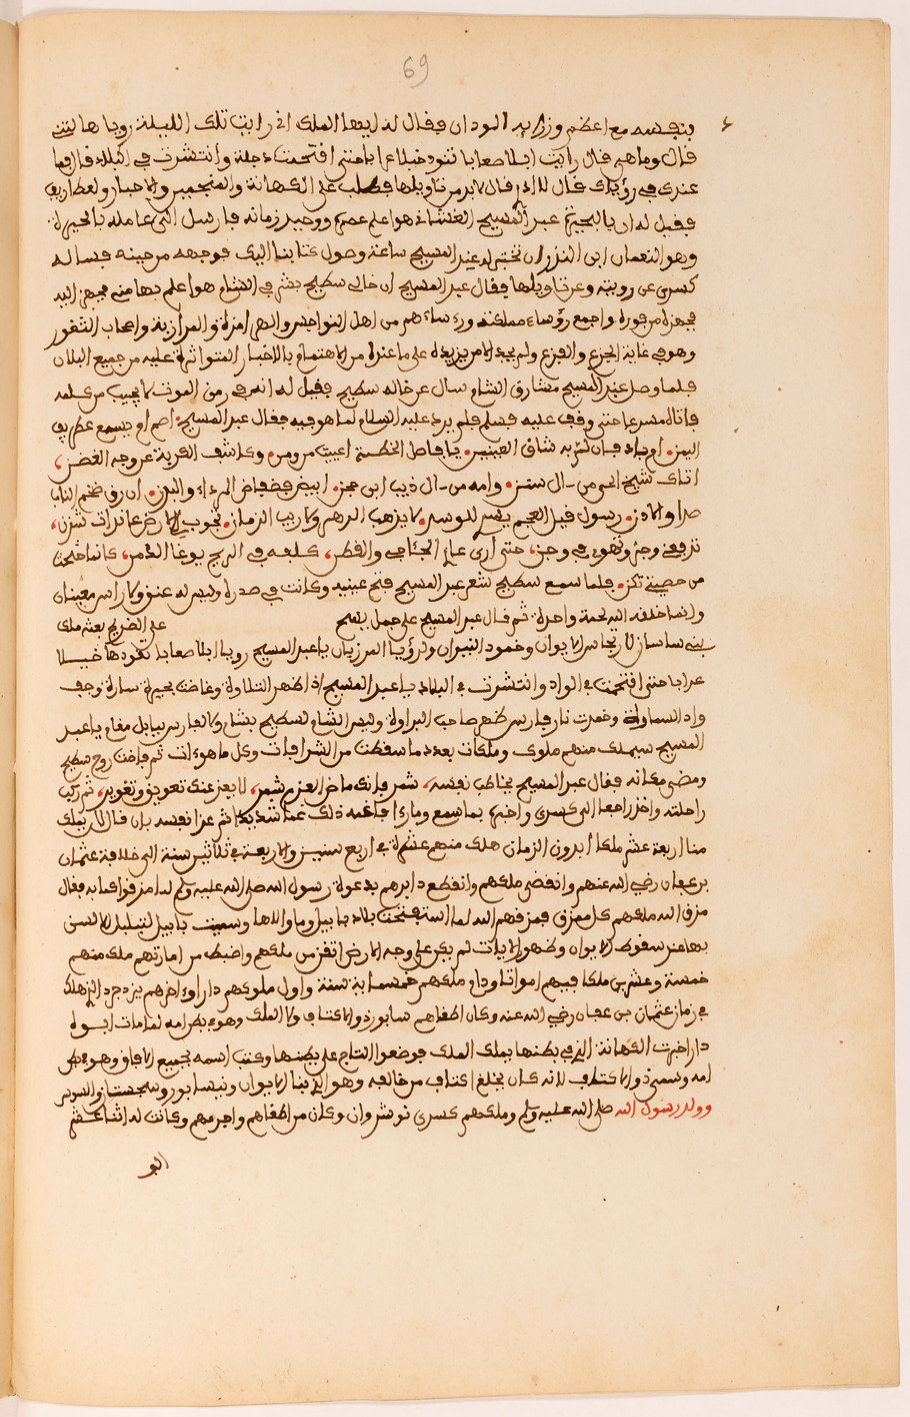 69
بنفسه مع اعظم وزرايه الودان فقال له ايها الملك اني رايت تلك الليلة رويا هالتني
قال وما هي قال رايت ابلا صعابا تقود خيلا عرابا حتى افتحمت دجلة وانتشرت في البلاد قال فما
عندك في رؤيك قال لا ادر قال لابد من تاويلها فطلب على الكهانة والمنجمين والاحبار والعطاريف
فقيل له ان بالحيرة عبد المسيح الغساني هو اعلم عصره ووحيد زمانه فارسل الى عامله بالحيرة
وهو النعمان ابن المنذر ان تحضر له عبد المسيح ساعة وصول كتابنا اليك فوجهه من حينه فساله
كسرى عن رويته وعن تاويلها فقال عبد المسيح ان خالي سطيح بشرقي الشام هو اعلم بها مني فجهزني اليه
فجهزه من فوره واجمع رؤساء مملكته ورءساءهم من اهل النواحي والهرامزة والمرازبة واصحاب الثغور
وهو في غاية الجزع والفزع ولم يجد الا من يزيده على ما عنده من الاهتمام بالاخبار المتواترة عليه من جميع البلدان
فلما وصل عبد المسيح مشارق الشام سال عن خاله سطيح فقيل له انه في زمن الموت لا يجيب من كلمه
فاتاه مسرعا حتى وقف عليه فسلم فلم يرد عليه السلام لما هو فيه فقال عبد المسيح اصم ام يسمع غطريف
اليمن ام باد فبان لنزبه شاق العينين يا فاصل الخطة اعيت من ومن وكاشف الكربة عن وجه الغضن
اتاك شيخ الحي من ال سنن وامه من ال ذيب ابن حجن ابيض فضفاض الرداء والبدن ان رق ضخم الناب
صرار الاذن رسول قيل العجم يسر للوسن لا يرهب الدهر ولا ريب الزمان تجوب في الارض علندات شزن
ترفعني وجن وتهوي في وجن حتى ارى عاري الجئاجي والقطن تلفه في الريح بوغا الدمن كانما حثحث
من حضني تكن فلما سمع سطيح شعر عبد المسيح فتح عينيه وكانت في صدره وليس له عنق ولا راس معينان
وانما خلقه الله لحمة واحدة ثم قال عبد المسيح على جمل يسيح على الضريح بعثه ملك
بني ساسان لارتجاس الايوان وخمود النيران ولرؤيا المرزبان يا عبد المسيح رويا ابلا صعابا تقودها خيلا
عرابا حتى افتحمت في الواد وانتشرت في البلاد يا عبد المسيح اذا ظهر التلاوة وغاضت بحيرة ساوة وجف
واد السماوة وخمدت نار فارس ظهر صاحب الهراوة وليس الشام لسطيح بشام ولا لفارس ببابل مقام يا عبد
المسيح سيملك منهم ملوك وملكات بعدد ما سقطت من الشرافات وكل ما هو ءات ثم فاضت روح سطيح
ومضى مكانه فقال عبد المسيح يخاطب نفسه شمر فانك ماض العزم شمر لا يفزعنك تفريق وتغيير ثم ركب
راحلته واخذ راجعا الى كسرى واخبره بما سمع وما رءا فاغمه ذلك غما شديدا ثم عزا نفسه بان قال الى ان يملك
منا اربعة عشر ملكا يدور الزمان هلك منهم عشرة في اربع سنين والاربعة في ثلاثين سنة الى خلافة عثمان
بن عفان رضي الله عنهم وانقضى ملكهم وانقطع دابرهم بدعوة رسول الله صلى الله عليه وسلم لما مزقوا كتابه فقال
مزق الله ملكهم كل ممزق فمزقهم الله لما استفتحت بلاد بابيل وما والاها وسميت بابيل لتبلبل الالسن
بها عند سقوط الايوان وظهور الايات لم يكن على وجه الارض اتقن من ملكهم واضبط من امارتهم ملك منهم
خمسة وعشرين ملكا فيهم امواتا وداو ملكهم خمسماية سنة واول ملوكهم دارا وءاخرهم يزدجرد الذي هلك
في زمان عثمان بن عفان رضي الله عنه وكان اطغاهم سابور ذو الاكتاف ولا الملك وهو في بطن امه لما مات ابوه
دارا خبرت الكهانة الذي في بطنها يملك الملك فوضعوا التاج على بطنها وكتب اسمه بجميع الافاق وهو في بطن
امه وسمي ذو الاكتاف لانه كان يخلع اكتاف من خالفه وهو الذي بنا الايوان ونيسابور وسجستان والسوس
وولد رسول الله صلى الله عليه وسلم وملكهم كسرى نوشروان وكان من اطغاهم واجرمهم وكانت له اثنا عشر
الو